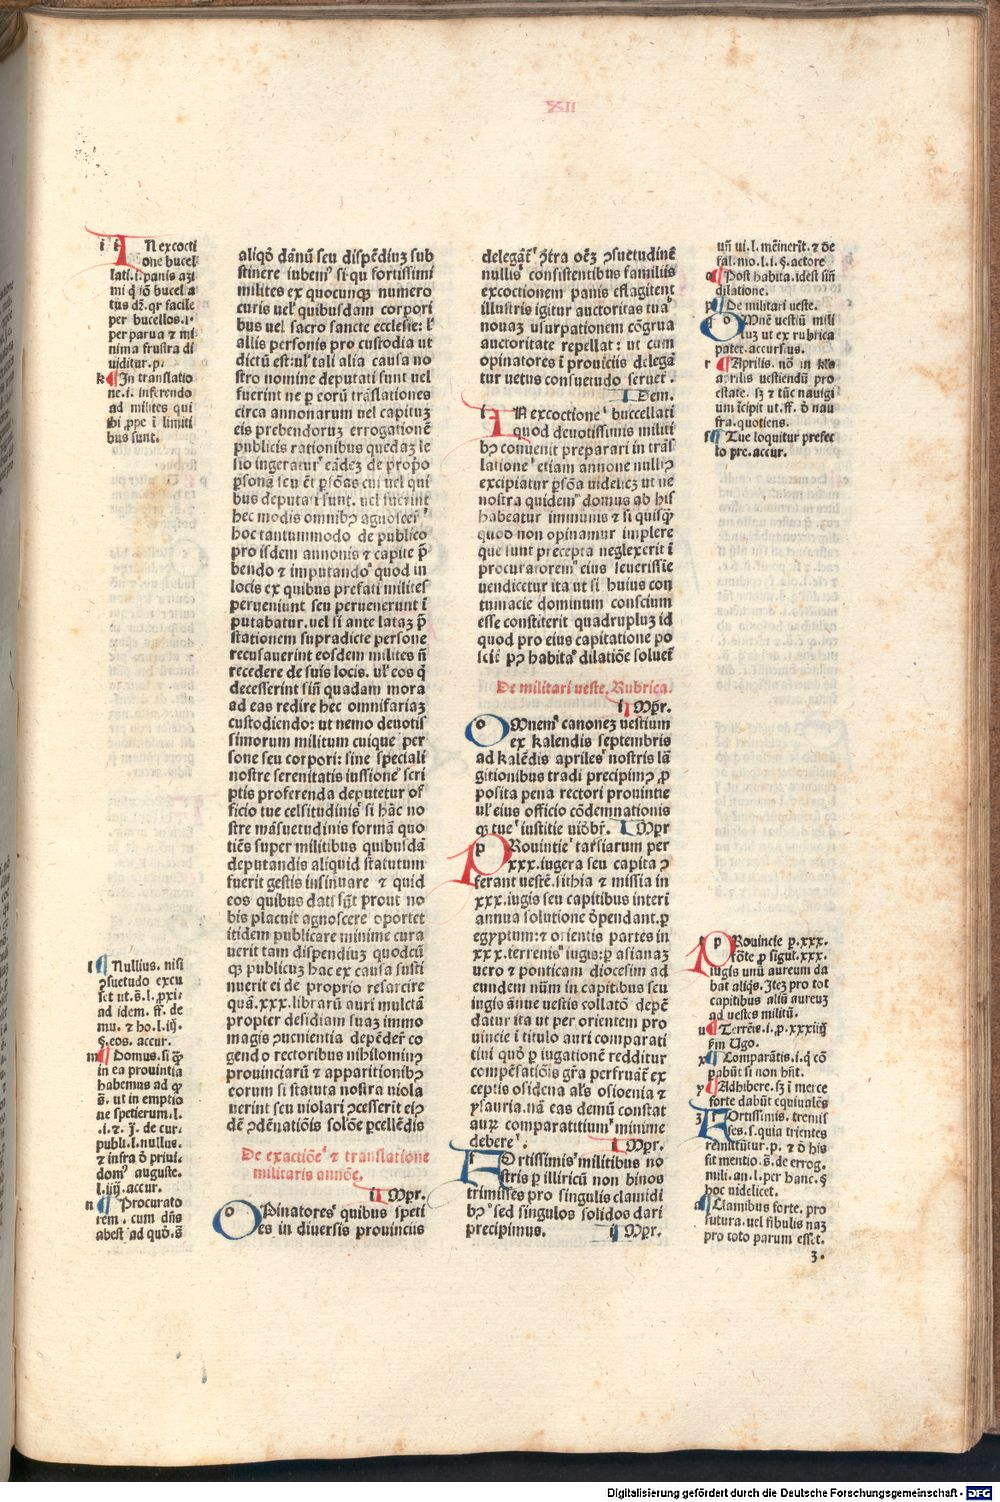 XII
i i N excocti
one bucel
lati.i.panis azi
mi q̇ iõ bucel a
tus dz̄. qr facile
per bucellos.i.
per parua ⁊ mi
nima frustra di
uiditur.p.
k In translatio
ne.i. inferendo
ad milites qui
ibi ꝓpe ĩ limiti
bus sunt.
l Nullius. nisi
ꝯsuetudo excu
set ut.s̄.l. ꝓxi.
ad idem. ff. de
mu. ⁊ ho.l.iiij.
§.eos. accur.
m Domus.si qꝫ
in ea prouintia
habemus ad q̇
s̄. ut in emptio
ne spetierum.l.
.i.⁊. ij̄. de cur.
publi.l.nullus.
⁊ infra õ priui.
dom⁹ auguste.
l.iiij.accur.
n Procurato
rem. cum dñs
abest ad quõ.s̄
aliqð dãnũ seu dispẽdiuꝫ sub
stinere iubem⁹ si qui fortissimi
milites ex quocunqꝫ numero
curis uel quibusdam corpori
bus uel sacro sancte ecclesie: ul̄
allis personis pro custodia ut
dictũ est:ul̄ tali alia causa no
stro nomine deputati sunt uel
fuerint ne ꝑ eorũ trãslationes
circa annonarum uel capituꝫ
eis prebendoruꝫ errogationẽ
publicis rationibus quedaꝫ le
sio ingeratur eãdeꝫ de propõ
ꝑsonã seu ẽt ꝑsõas cui uel qui
bus deputati sunt. uel fuerint
hec modis omnibꝫ agnoscere
hoc tantummodo de publico
pro isdem annonis ⁊ capite p̃
bendo ⁊ imputando quod in
locis ex quibus prefati milites
perueniunt seu peruenerunt ĩ
putabatur.uel si ante lataꝫ p̃
stationem supradicte persone
recusauerint eosdem milites ñ
recedere de suis locis. ul̄ eos q̇
decesserint siñ quadam mora
ad eas redire hec omnifariaꝫ
custodiendo: ut nemo deuotis
simorum militum cuique per
sone seu corpori: sine speciali
nostre serenitatis iussione scri
ptis proferenda deputetur of
ficio tue celsitudinis si hãc no
stre mãsuetudinis formã quo
tiẽs super militibus quibusdã
deputandis aliquid statutum
fuerit gestis insinuare ⁊ quid
eos quibus dati sũt prout no
bis placuit agnoscere oportet
itidem publicare minime cura
uerit tam dispendiuꝫ quodcũ
qꝫ publicuꝫ hac ex causa susti
nuerit ei de proprio resarcire
quã.xxx.librarũ auri mulctã
propter desidiam suaꝫ immo
magis ꝯuenientia depẽdet co
gendo rectoribus nihilominꝫ
prouinciarũ ⁊ apparitionibꝫ
eorum si statuta nostra uiola
uerint seu uiolari ꝯcesserit eiꝫ
dẽ ꝯdẽnatiõis solõe ꝑcellẽdis
De exactiõe ⁊ translatione
militaris annõe.
i Mpr.
O Pinatores quibus speti
es in diuersis prouinciis
delegãt ꝯtra oẽꝫ ꝯsuetudinẽ
nullis consistentibus familiis
excoctionem panis eflagitent
illustris igitur auctoritas tua
nouaꝫ usurpationem cõgrua
auctoritate repellat: ut cum
opinatores ĩ prouiciis delegã
tur uetus consuetudo seruet.
Idem.
i N excoctione buccellati
quod deuotissimis militi
bꝫ conuenit preparari in trãs
latione etiam annone nulliꝫ
excipiatur ꝑsõa uidelicꝫ ut ne
nostra quidem domus ab his
habeatur immunis ⁊ si quisqꝫ
quod non opinamur implere
que sunt precepta neglexerit ĩ
procuratorem eius seuerissie
uendicetur ita ut si huius con
tumacie dominum conscium
esse constiterit quadrupluꝫ id
quod pro eius capitatione po
scit̃ pꝫ habita dilatiõe soluet̃
De militari ueste. Rubrica.
i Mp̃r.
O Mnem canoneꝫ uestium
ex kalendis septembris
ad kalẽdis apriles nostris lã
gitionibus tradi precipimꝫ ꝓ
posita pena rectori prouintie
ul̄ eius officio cõdemnationis
qꝫ tue iustitie uiðbr̃. i Mpr
P Rouintie tarsiarum per
xxx.iugera seu capita ꝯ
ferant uestẽ.sithia ⁊ missia in
xxx.iugis seu capitibus interi
annua solutione ðpendant.ꝑ
egyptum:⁊ orientis partes in
xxx.terrenis iugis:ꝑ asianaꝫ
uero ⁊ ponticam diocesim ad
eundem nũm in capitibus seu
iugis ãnue uestis collatõ depẽ
datur ita ut per orientem pro
uincie ĩ titulo auri comparati
tiui quõ ꝑ iugationẽ redditur
compẽsatiõis gr̃a perfruãt̃ ex
ceptis osidena al̃s osioenia ⁊
ysauria.nã eas demũ constat
aurꝫ comparatitium minime
debere. i Mpr.
F Ortissimis militibus no
stris ꝑ illiricũ non binos
trimisses pro singulis clamidi
bꝫ sed singulos solidos dari
precipimus. ij Mpr.
uñ ui.l. mẽinerit. ⁊ ðe
fal.mo.l.i.§.actore
o Post habita. idest siñ
dilatione.
p De militari ueste.
q O Mnẽ uestiũ mili
tuꝫ ut ex rubrica
patet.accursius.
r Aprilis. nõ in kl̃s
aprilis uestiendũ pro
estate. sꝫ ⁊ tũc nauigi
um ĩcipit ut.ff. õ nau
fra.quotiens.
s Tue loquitur prefec
to pre.accur.
t P Rouincie ꝑ.xxx.
fõte ꝓ sigul̃.xxx.
iugis unũ aureum da
bãt aliqs̃.Iteꝫ pro tot
capitibus aliũ aureuꝫ
ad uestes militũ.
u Terrẽis.i.ꝑ.xxxiiij
ẜm Ugo.
x Comparãtis.i.q̇ cõ
pabũt si non hñt.
y Adhibere.sꝫ ĩ merce
forte dabũt equiualẽs
z F Ortissimis. tremis
ses.s.quia trientes
remittũtur.p. ⁊ õ his
fit mentio.s̄.de errog.
mili.an.l.per hanc.§
hoc uidelicet.
a Clamibus forte. pro
sutura.uel fibulis naꝫ
pro toto parum esset.
3.
Digitalisierung gefördert durch die Deutsche Forschungsgemeinschaft - DFG